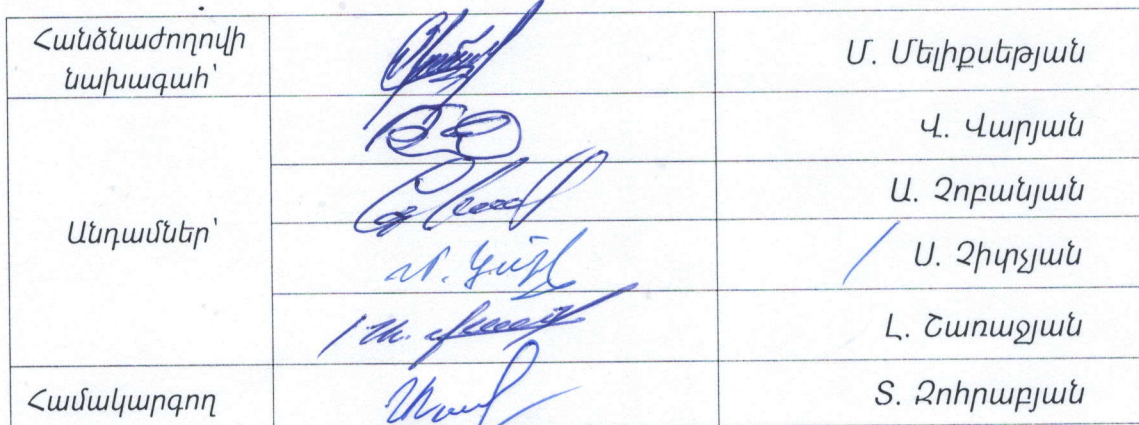 Հանձնաժողովի
նախագահ՝
Մ. Մելիքսեթյան
Անդամներ՝
Վ. Վարյան
Ա. Չոբանյան
Ս. Չիտչյան
Լ. Շառաջյան
Համակարգող
Տ. Զոհրաբյան